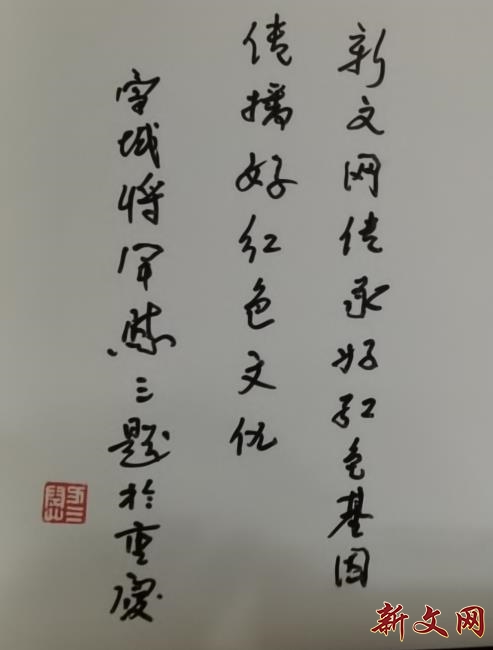 新文网传承好红色基因
传播好红色文化
将军 三题于重庆
新文网